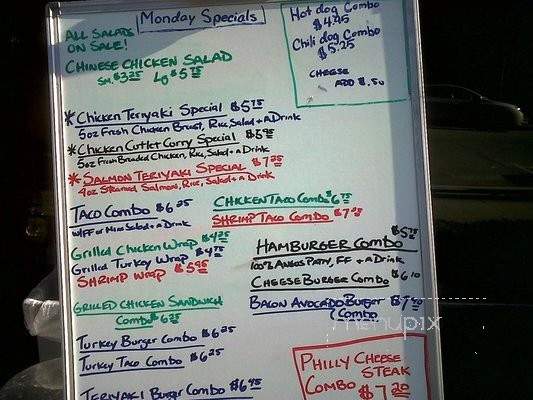 Monday Specials
ALL SALADS
ON SALE!
CHINESE CHICKEN SALAD
SM. $3.25 LG $5.75
Hot dog Combo
$4.45
Chili dog Combo
$5.25
CHEESE
ADD $.50
*Chicken Teriyaki Special $5.75
5oz Fresh Chicken Breast, Rice, Salad + a Drink
*Chicken Cutlet Curry Special $5.95
5oz Fresh Breaded Chicken, Rice, Salad + a Drink
*SALMON TERIYAKI SPECIAL $7.25
4oz Steamed Salmon, Rice, Salad + a Drink
TACO COMBO $6.25
W/FF or Mini Salad + a Drink
CHICKEN TACO Combo $6.75
SHRIMP TACO COMBO $7.25
Grilled Chicken Wrap $4.25
Grilled Turkey Wrap $4.75
SHRIMP WRAP $5.95
$5.75
HAMBURGER COMBO
100% ANGUS PATTY, FF + A DRINK
CHEESE BURGER COMBO $6.10
BACON AVOCADO BURGER $7.50
COMBO
GRILLED CHICKEN SANDWICH
COMBO $6.25
Turkey Burger Combo $6.25
Turkey Taco Combo $6.25
TERIYAKI Burger Combo $6.95
PHILLY CHEESE
STEAK
COMBO $7.20
menupix